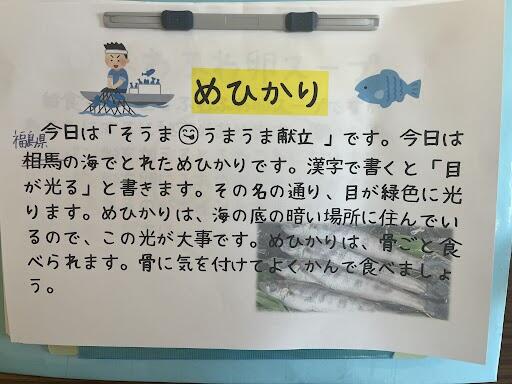 めひかり
今日は「そうま😋うまうま献立 」です。今日は
福島県
相馬の海でとれためひかりです。漢字で書くと「目
が光る」と書きます。その名の通り、目が緑色に光
ります。めひかりは、海の底の暗い場所に住んでい
るので、この光が大事です。めひかりは、骨ごと食
べられます。骨に気を付けてよくかんで食べましょ
う。